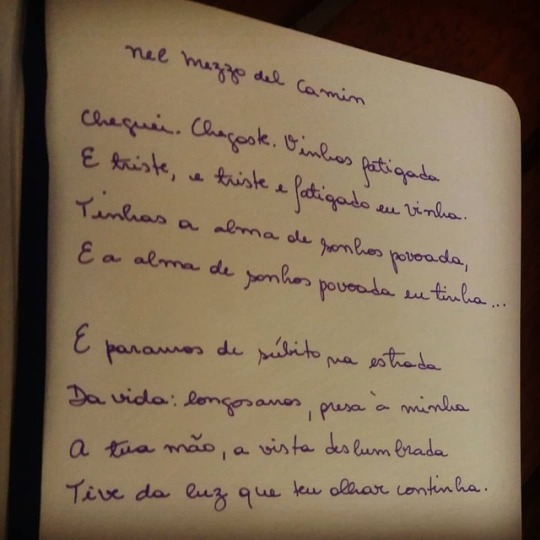 nel mezzo del camin
Cheguei. Chegaste. Vinhas fatigada
E triste, e triste e fatigado eu vinha.
Tinhas a alma de sonhos povoada,
E a alma de sonhos povoada eu tinha...
E paramos de súbito na estrada
Da vida: longos anos, presa à minha
A tua mão, a vista deslumbrada
Tive da luz que teu olhar continha.